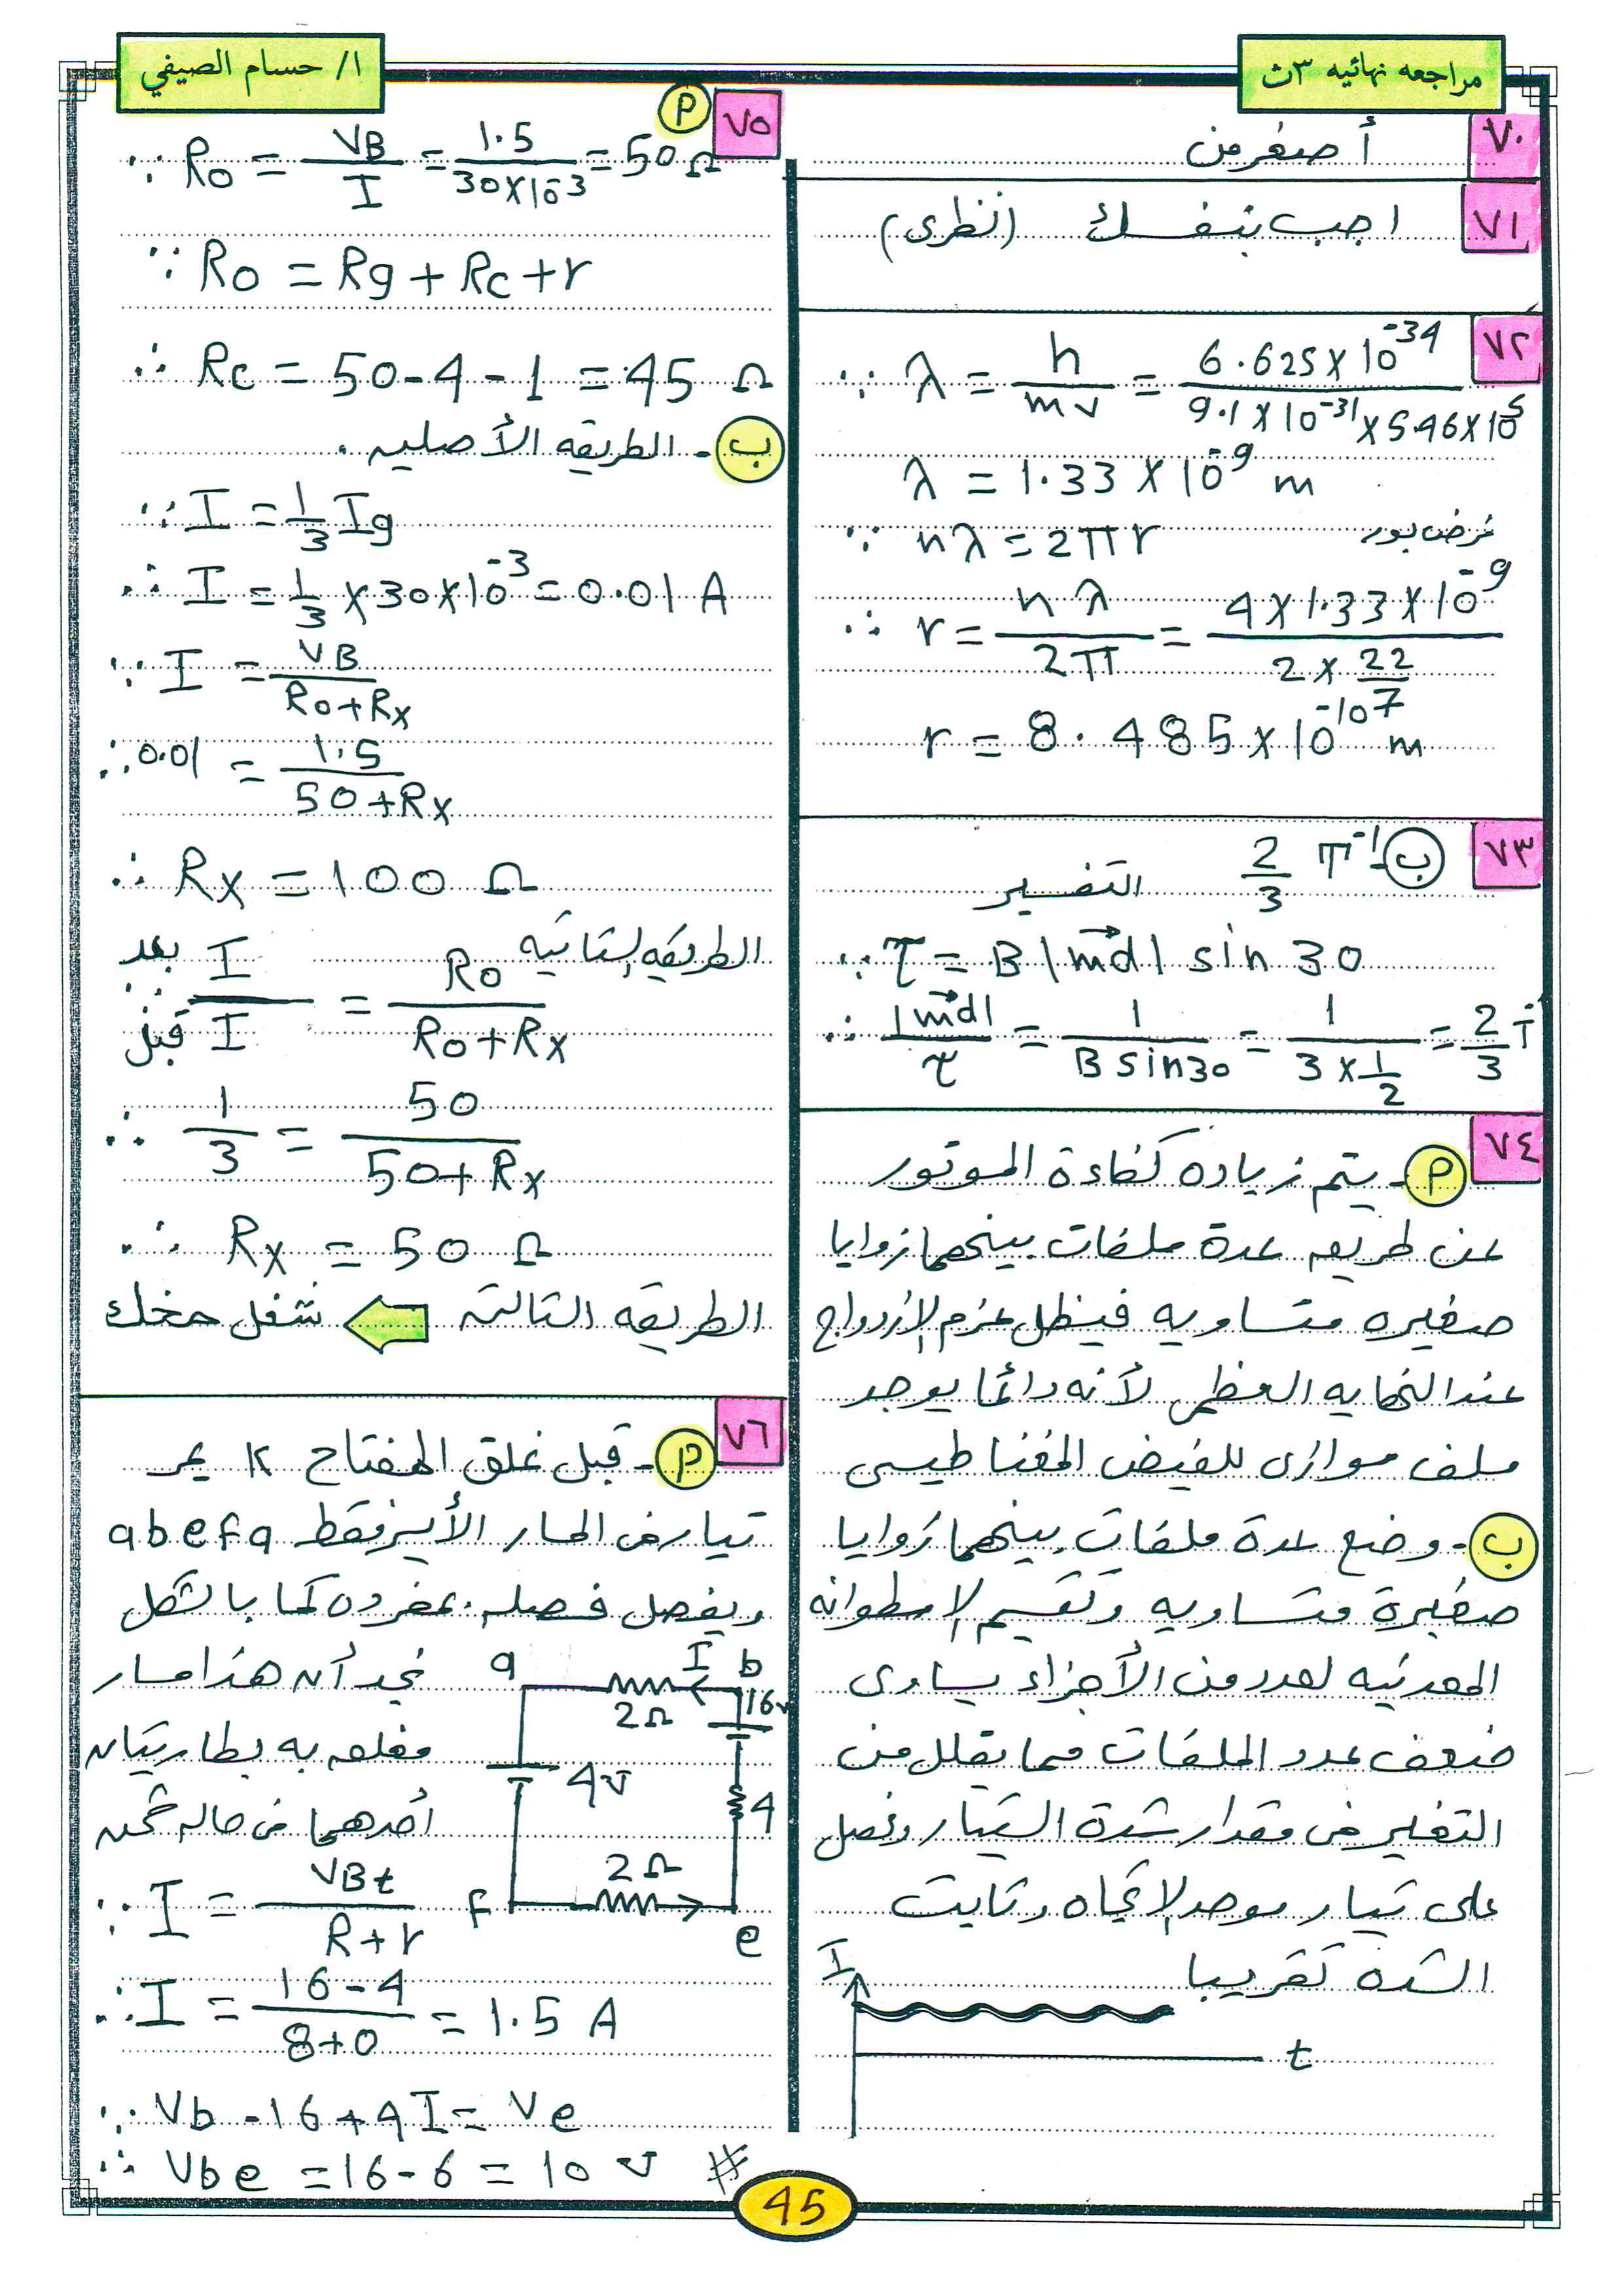 مراجعه نهائيه ٣ث
ا/ حسام الصيفي
٧٠
أصغر من
٧١
اجب بنفسك (نظرى)
٧٢
∵ λ = h / mv = 6.625 × 10^-34 / 9.1 × 10^-31 × 5.46 × 10^5
λ = 1.33 × 10^-9 m
∵ nλ = 2πr فرض بور
∴ r = nλ / 2π = 4 × 1.33 × 10^-9 / 2 × 22/7
r = 8.485 × 10^-10 m
٧٣
ب - 2/3 T^-1
التفسير
∵ τ = B |md| sin 30
∴ |md| / τ = 1 / B sin 30 = 1 / 3 × 1/2 = 2/3 T^-
٧٤
أ - يتم زياده كفاءة الموتور
عن طريق عدة ملفات بينهما زوايا
صغيره متساويه فيظل عزم الازدواج
عند النهايه العظمى لأنه دائما يوجد
ملف موازى للفيض المغناطيسى
ب - وضع عدة ملفات بينهما زوايا
صغيرة متساويه وتقسيم الاسطوانه
المعدنيه لعدد من الأجزاء يساوى
ضعف عدد الملفات مما يقلل من
التغير فى مقدار شدة التيار ونحصل
على تيار موحد الاتجاه وثابت
الشده تقريبا
I
t
٧٥
أ
∴ Ro = VB / I = 1.5 / 30 × 10^-3 = 50 Ω
∵ Ro = Rg + Rc + r
∴ Rc = 50 - 4 - 1 = 45 Ω
ب - الطريقه الأصليه .
∵ I = 1/3 Ig
∴ I = 1/3 × 30 × 10^-3 = 0.01 A
∵ I = VB / Ro + Rx
∴ 0.01 = 1.5 / 50 + Rx
∴ Rx = 100 Ω
الطريقه الثانيه
∵ I بعد / I قبل = Ro / Ro + Rx
∴ 1/3 = 50 / 50 + Rx
∴ Rx = 50 Ω
الطريقه الثالثه شغل مخك
٧٦
أ - قبل غلق المفتاح K يمر
تيار فى المسار الأيسر فقط abefa
ويفضل فصله بمفرده كما بالشكل
نجد أن هذا مسار
مغلق به بطاريتان
أحدهما فى حاله شحن
a
I
b
2Ω
16v
4v
4
2Ω
F
e
∵ I = VBt / R + r
∴ I = 16 - 4 / 8 + 0 = 1.5 A
∵ Vb - 16 + 4I = Ve
∴ Vbe = 16 - 6 = 10 v #
45